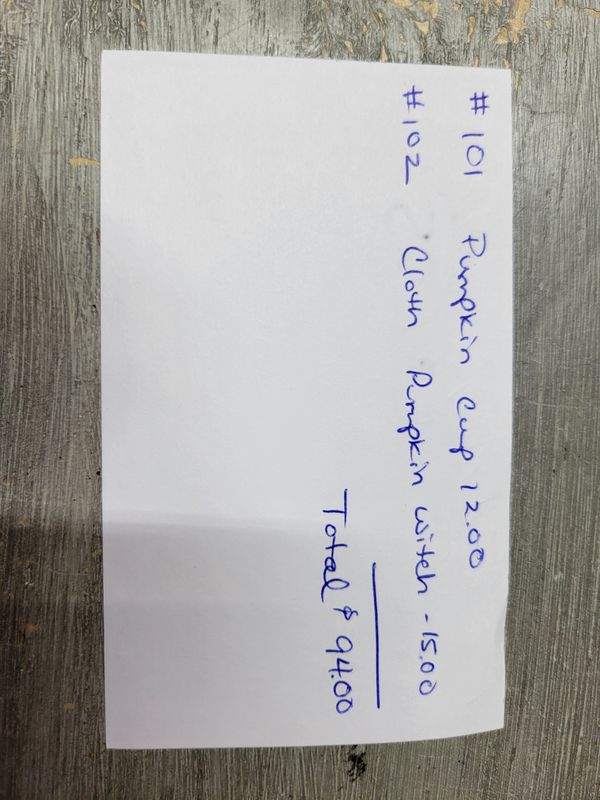 # 101 Pumpkin Cup 12.00
#102 Cloth Pumpkin witch - 15.00
Total $ 94.00